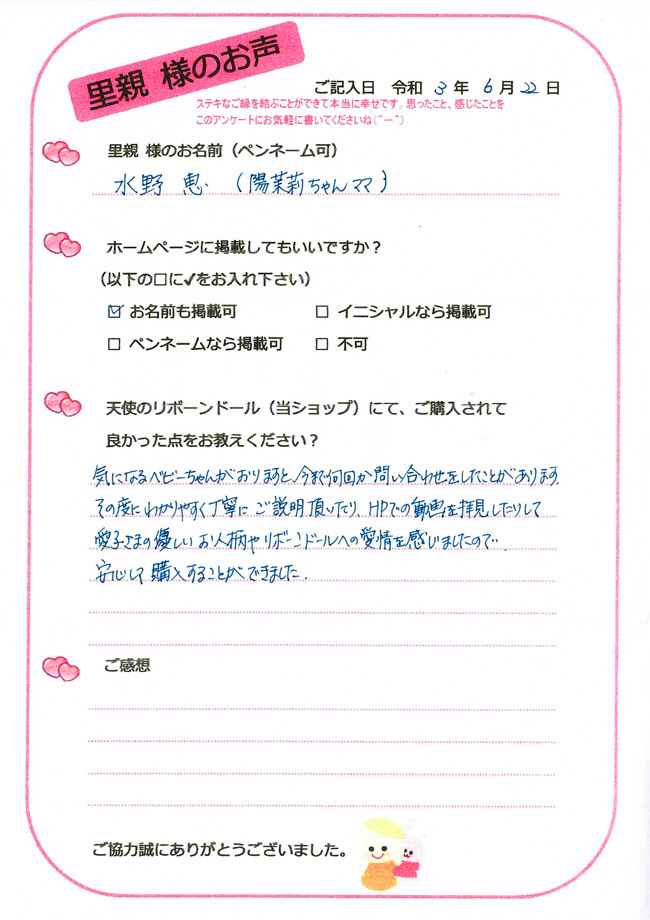 里親 様のお声
ご記入日 令和 3 年 6 月 22 日
ステキなご縁を結ぶことができて本当に幸せです。思ったこと、感じたことを
このアンケートにお気軽に書いてくださいね(^ー^)
里親 様のお名前（ペンネーム可）
水野 恵 （陽茉莉ちゃんママ）
ホームページに掲載してもいいですか？
（以下の□に✓をお入れ下さい）
☑ お名前も掲載可 □ イニシャルなら掲載可
□ ペンネームなら掲載可 □ 不可
天使のリボーンドール（当ショップ）にて、ご購入されて
良かった点をお教えください？
気になるベビーちゃんがおりますと、今まで何回か問い合わせをしたことがあります。
その度にわかりやすく丁寧に ご説明頂いたり、HPでの動画を拝見したりして
愛子さまの優しい お人柄や リボーンドールへの愛情を感じましたので、
安心して 購入することができました。
ご感想
ご協力誠にありがとうございました。